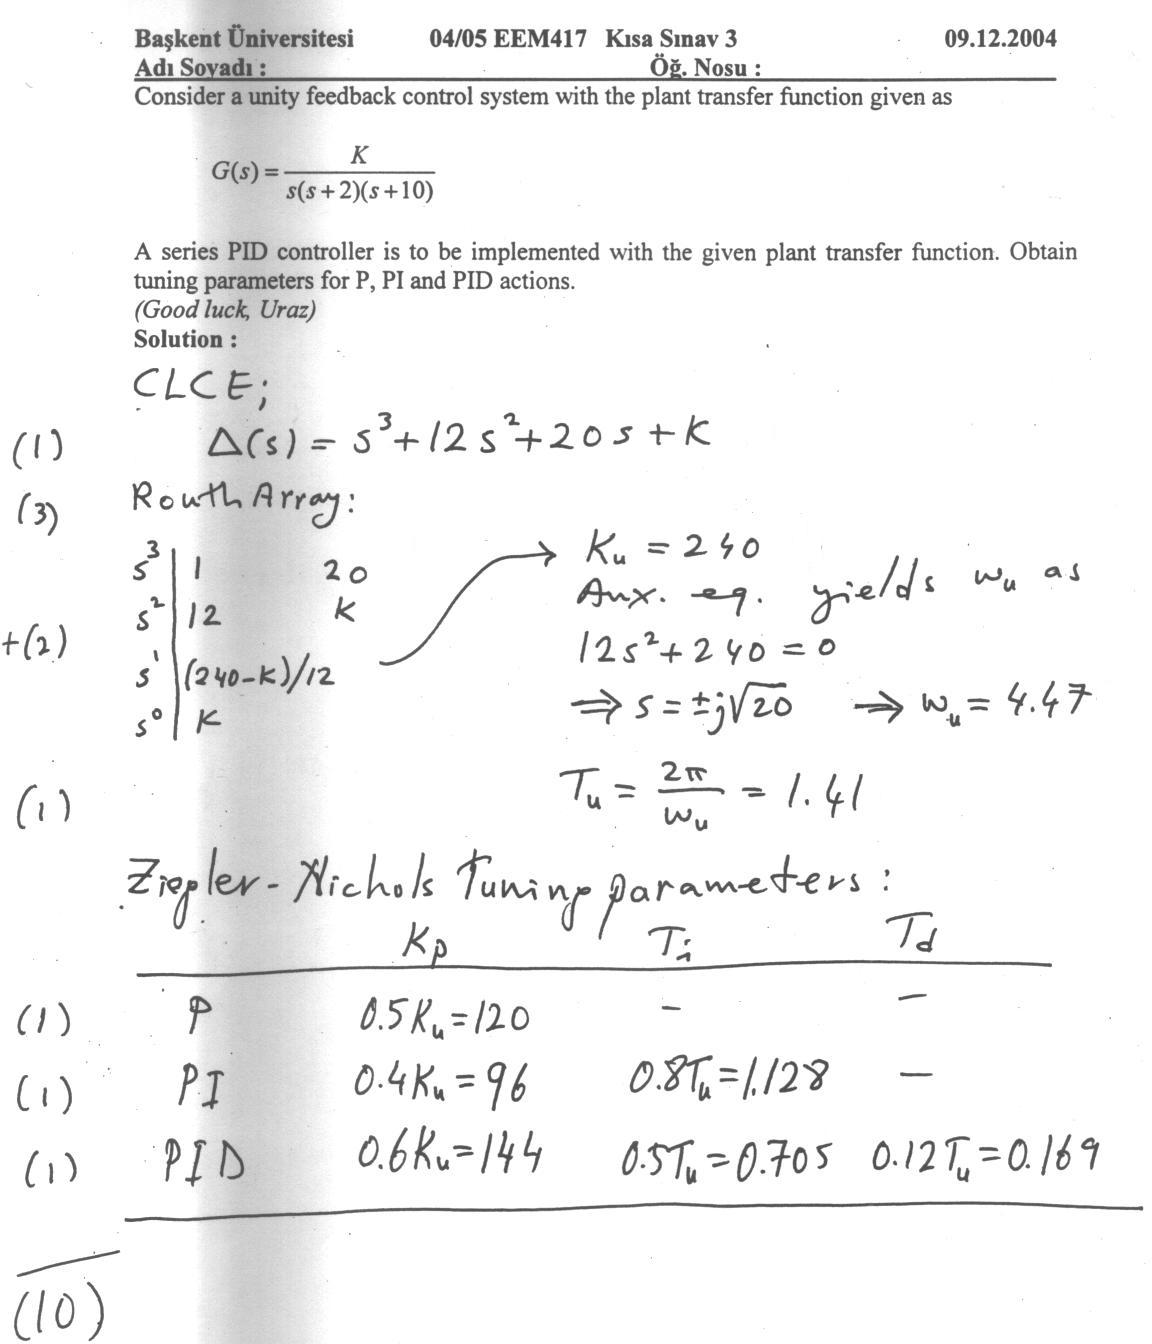 Başkent Üniversitesi 04/05 EEM417 Kısa Sınav 3 09.12.2004
Adı Soyadı : Öğ. Nosu :
Consider a unity feedback control system with the plant transfer function given as
G(s) = K / s(s+2)(s+10)
A series PID controller is to be implemented with the given plant transfer function. Obtain
tuning parameters for P, PI and PID actions.
(Good luck, Uraz)
Solution :
CLCE;
(1) Δ(s) = s³+12s²+20s+K
(3) Routh Array:
s³ 1 20
s² 12 K
+(2)
s¹ (240-K)/12
s⁰ K
→ Ku = 240
Aux. eq. yields wu as
12s²+240=0
⇒ s=±j√20 → wu = 4.47
(1) Tu = 2π/wu = 1.41
Ziegler-Nichols Tuning parameters:
Kp Ti Td
(1) P 0.5Ku=120 - -
(1) PI 0.4Ku=96 0.8Tu=1.128 -
(1) PID 0.6Ku=144 0.5Tu=0.705 0.12Tu=0.169
(10)